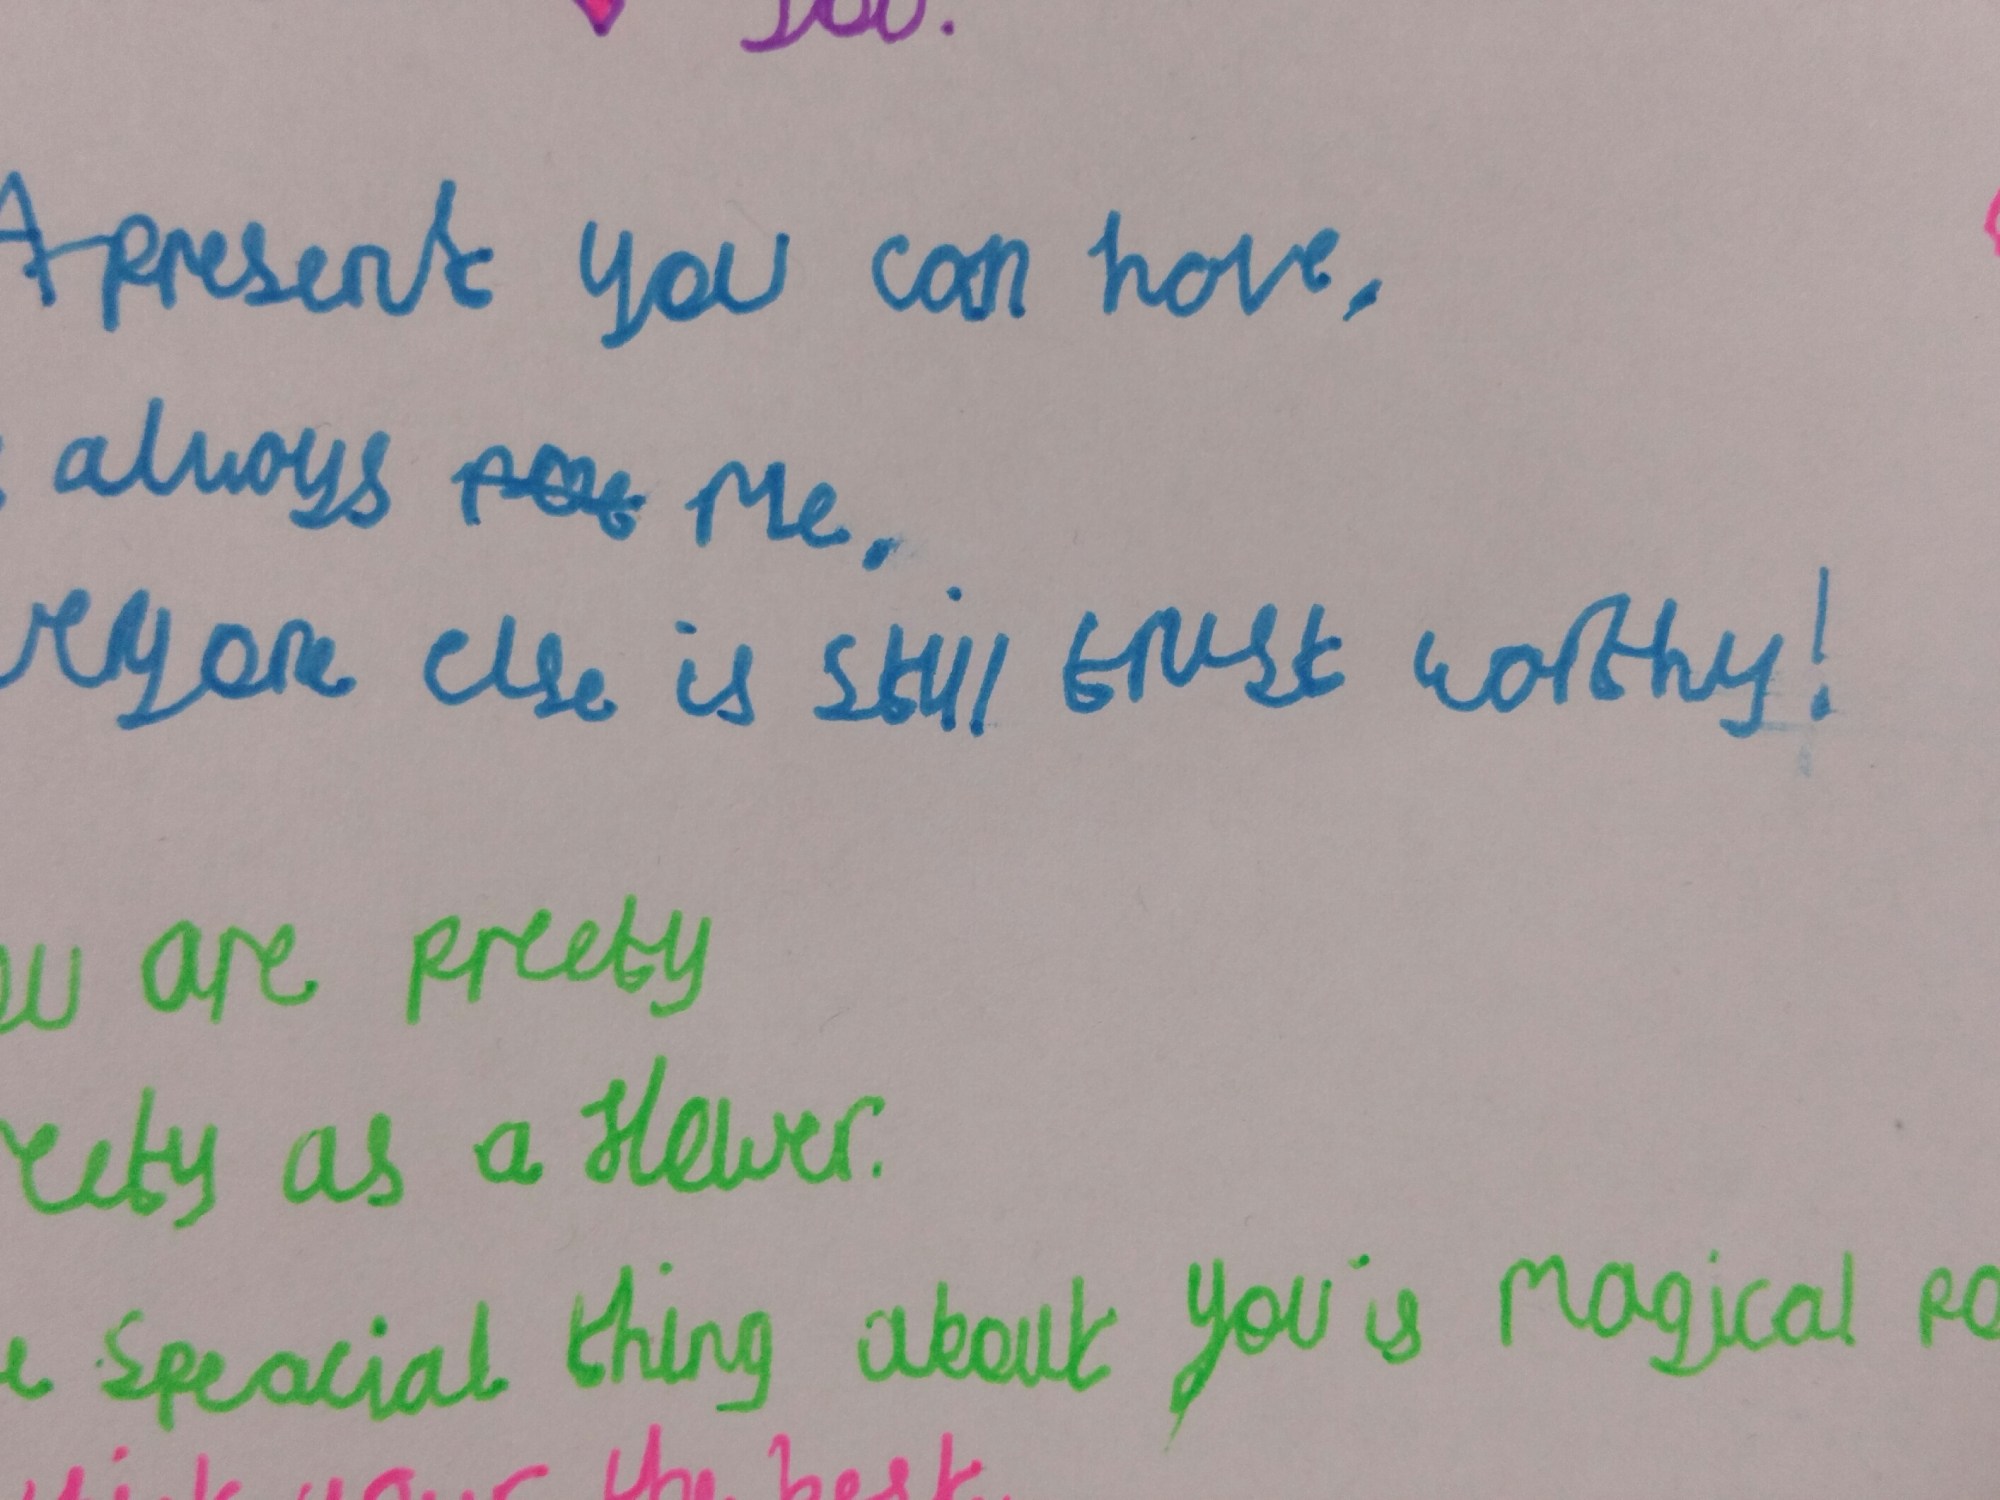 you.
A present you can have,
always me,
everyone else is still trust worthy!
you are preety
preety as a flower.
speacial thing about you is magical
your the best